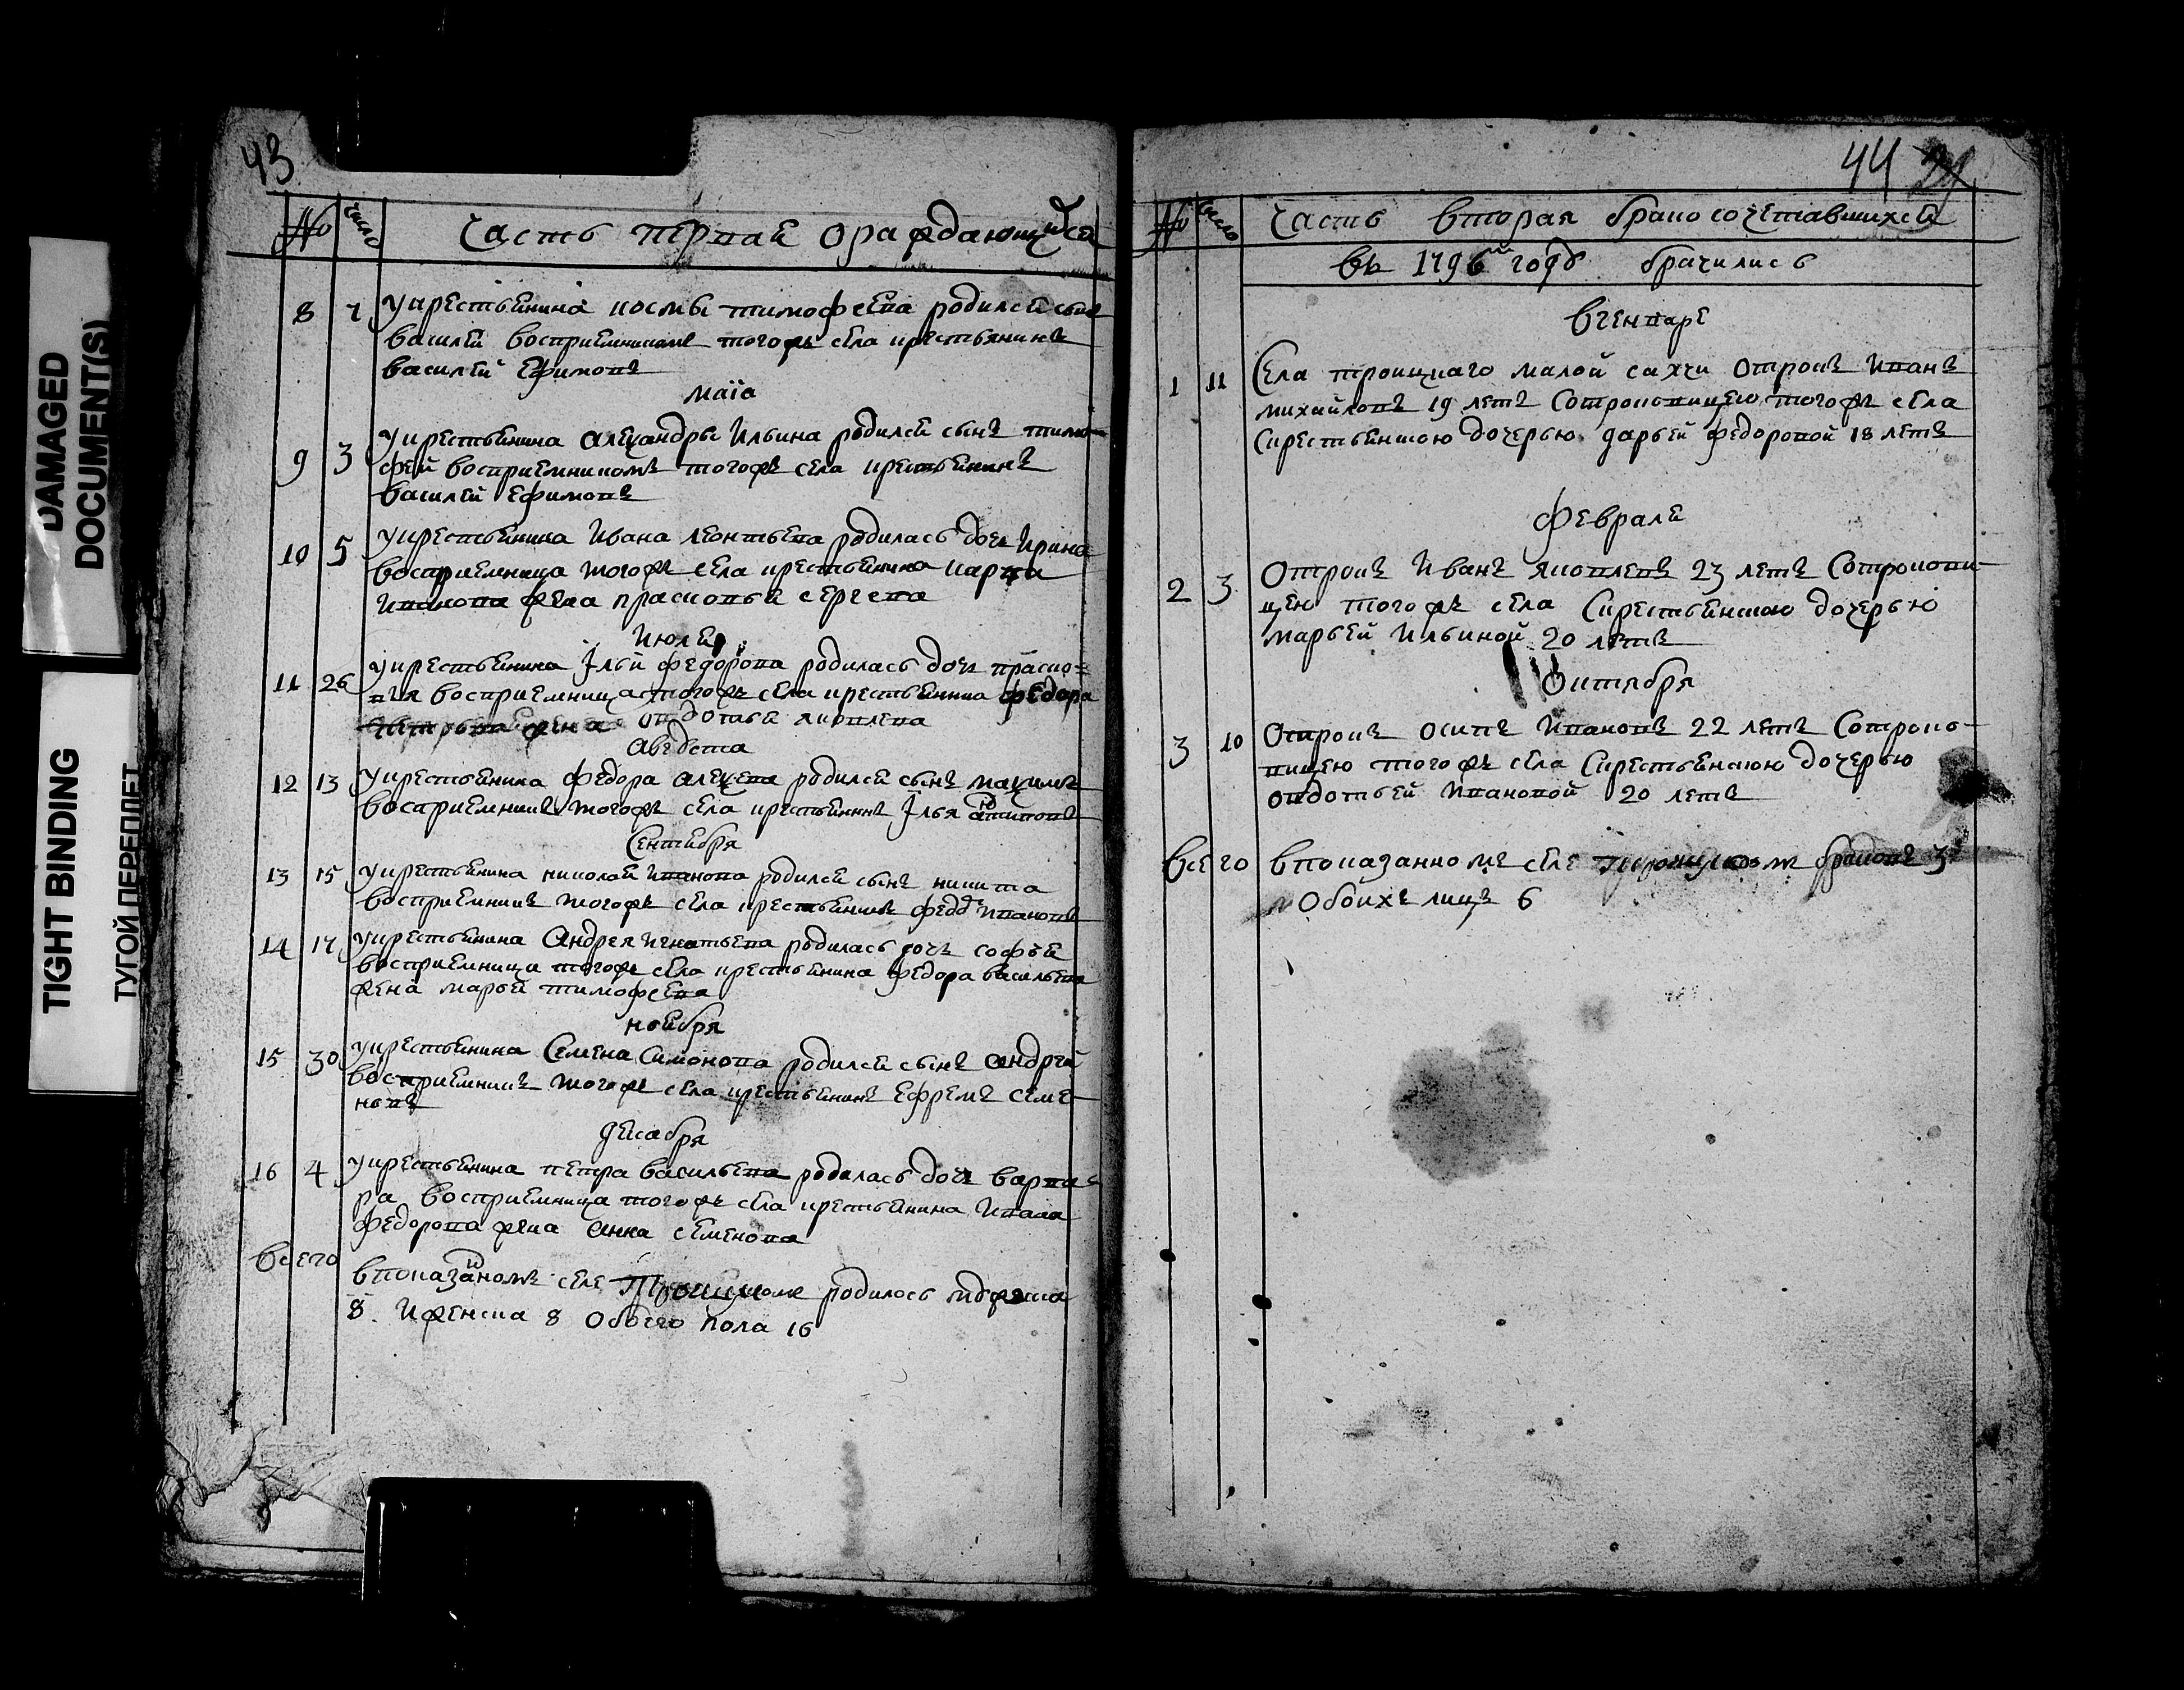 DAMAGED
DOCUMENT(S)
TIGHT BINDING
ТУГОЙ ПЕРЕПЛЕТ
43
№ число Часть первая ораждающихся
8 7 У крестьянина космы тимофеева родился сынъ
василей восприемникомъ тогожъ села крестьянинъ
василей Ефимовъ
маїа
9 3 У крестьянина алеѯандры Ильина родился сынъ тимо-
фей восприемникомъ тогожъ села крестьянинъ
василей Ефимовъ
10 5 У крестьянина Ивана леонтьева родилась дочь Ирина
восприемница тогожъ села крестьянина карпа
Иванова жена прасковья сергева
Июля
11 26 У крестьянина Iльи федорова родилась дочь праско=
вья восприемница тогожъ села крестьянина федора
жена овдотья яковлева
Августа
12 13 У крестьянина федора алеѯева родился сынъ маѯимъ
восприемникъ тогожъ села крестьянинъ Iлья
Сентября
13 15 У крестьянина николая иванова родился сынъ никита
восприемникъ тогожъ села крестьянинъ федоръ ивановъ
14 17 У крестьянина Андрея игнатьева родилась дочь софья
восприемница тогожъ села крестьянина федора васильева
жена марья тимофеева
ноября
15 30 У крестьянина Семена Симонова родился сынъ андрей
восприемникъ тогожъ села крестьянинъ Ефремъ семе-
новъ
декабря
16 4 У крестьянина петра васильева родилась дочь варва-
ра восприемница тогожъ села крестьянина Ивана
федорова жена анна семенова
всего в показанномъ селе Троицкомъ родилось мужеска
8. И женска 8 Обоего пола 16
44
№ число Часть вторая бракосочетавшихся
въ 1796м году брачились
в генваре
1 11 Села троицкаго малой сахчи Отрокъ Иванъ
михайловъ 19 летъ Сотроковицею тогожъ села
Скрестьянскою дочерью дарьей федоровой 18 летъ
Февраля
2 3 Отрокъ Иванъ яковлевъ 23 летъ Сотрокови-
цею тогожъ села Скрестьянскою дочерью
марьей Ильиной 20 летъ
Октября
3 10 Отрокъ осипъ Ивановъ 22 летъ Сотроко-
вицею тогожъ села Скрестьянскою дочерью
овдотьей Ивановой 20 летъ
всего в показанномъ селе Троицкомъ браковъ 3
Обоихъ лицъ 6